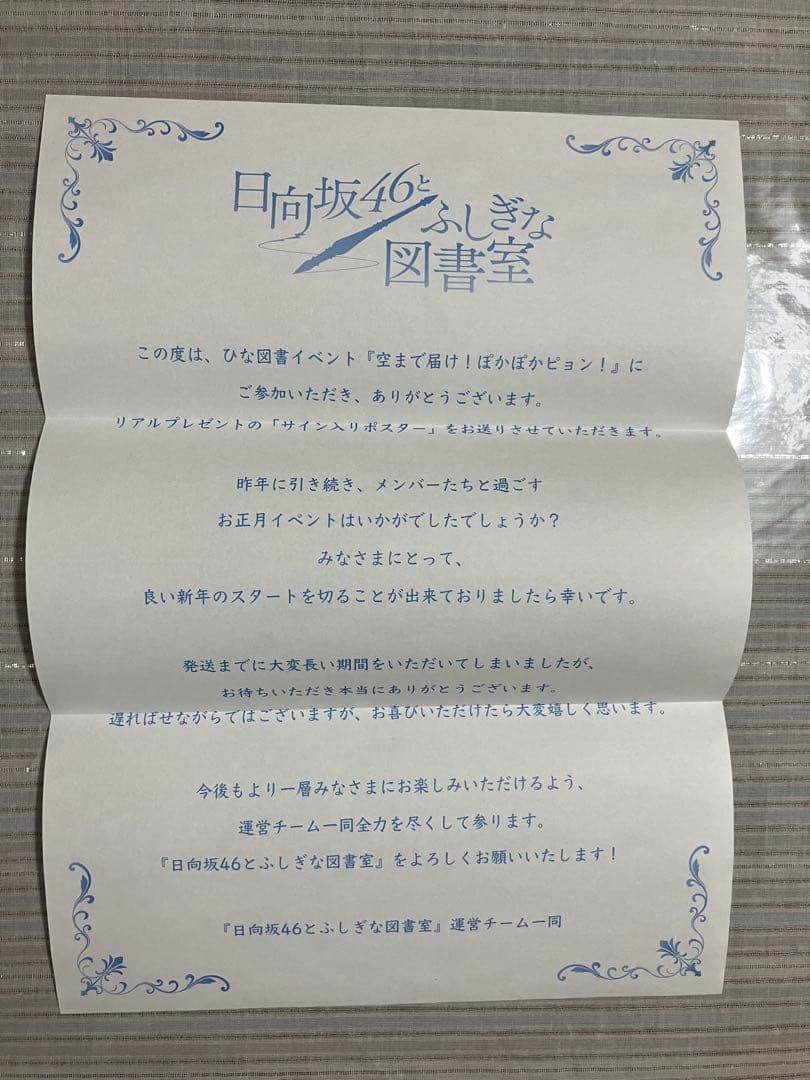 日向坂46と
ふしぎな
図書室
この度は、ひな図書イベント『空まで届け！ぽかぽかピョン！』に
ご参加いただき、ありがとうございます。
リアルプレゼントの「サイン入りポスター」をお送りさせていただきます。
昨年に引き続き、メンバーたちと過ごす
お正月イベントはいかがでしたでしょうか？
みなさまにとって、
良い新年のスタートを切ることが出来ておりましたら幸いです。
発送までに大変長い期間をいただいてしまいましたが、
お待ちいただき本当にありがとうございます。
遅ればせながらではございますが、お喜びいただけたら大変嬉しく思います。
今後もより一層みなさまにお楽しみいただけるよう、
運営チーム一同全力を尽くして参ります。
『日向坂46とふしぎな図書室』をよろしくお願いいたします！
『日向坂46とふしぎな図書室』運営チーム一同